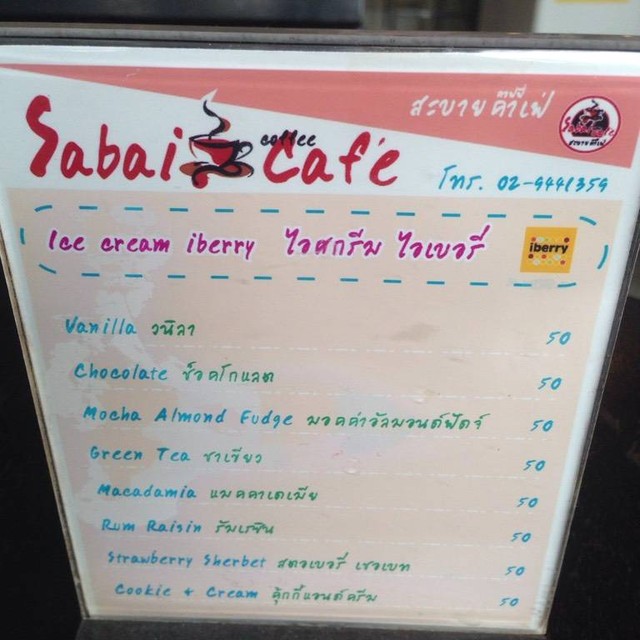 สะบาย คาเฟ่
Sabai coffee Café
โทร. 02-9441359
Ice cream iberry ไอศกรีม ไอเบอรี่ iberry
Vanilla วนิลา 50
Chocolate ช็อคโกแลต 50
Mocha Almond Fudge มอคค่าอัลมอนด์ฟัดจ์ 50
Green Tea ชาเขียว 50
Macadamia แมคคาเดเมีย 50
Rum Raisin รัมเรซิน 50
Strawberry Sherbet สตอเบอรี่ เชอเบท 50
Cookie + Cream คุ้กกี้แอนด์ครีม 50